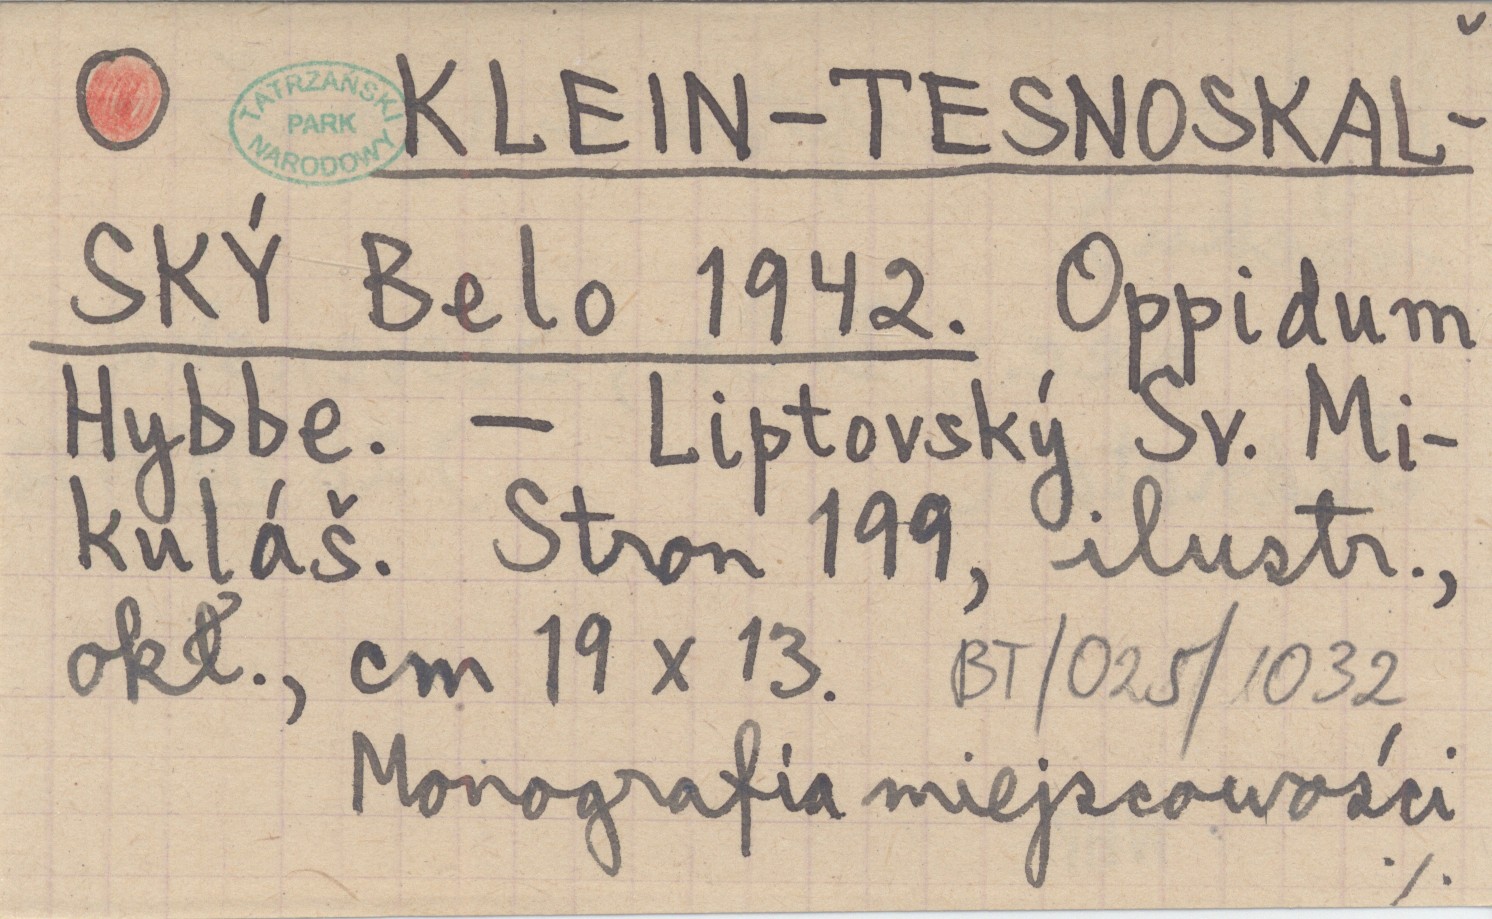 TATRZAŃSKI
PARK
NARODOWY
KLEIN-TESNOSKAL-
SKÝ Belo 1942. Oppidum
Hybbe. — Liptovský Sv. Mi-
kuláš. Stron 199, ilustr.,
okł., cm 19 x 13. BT/025/1032
Monografia miejscowości
./.